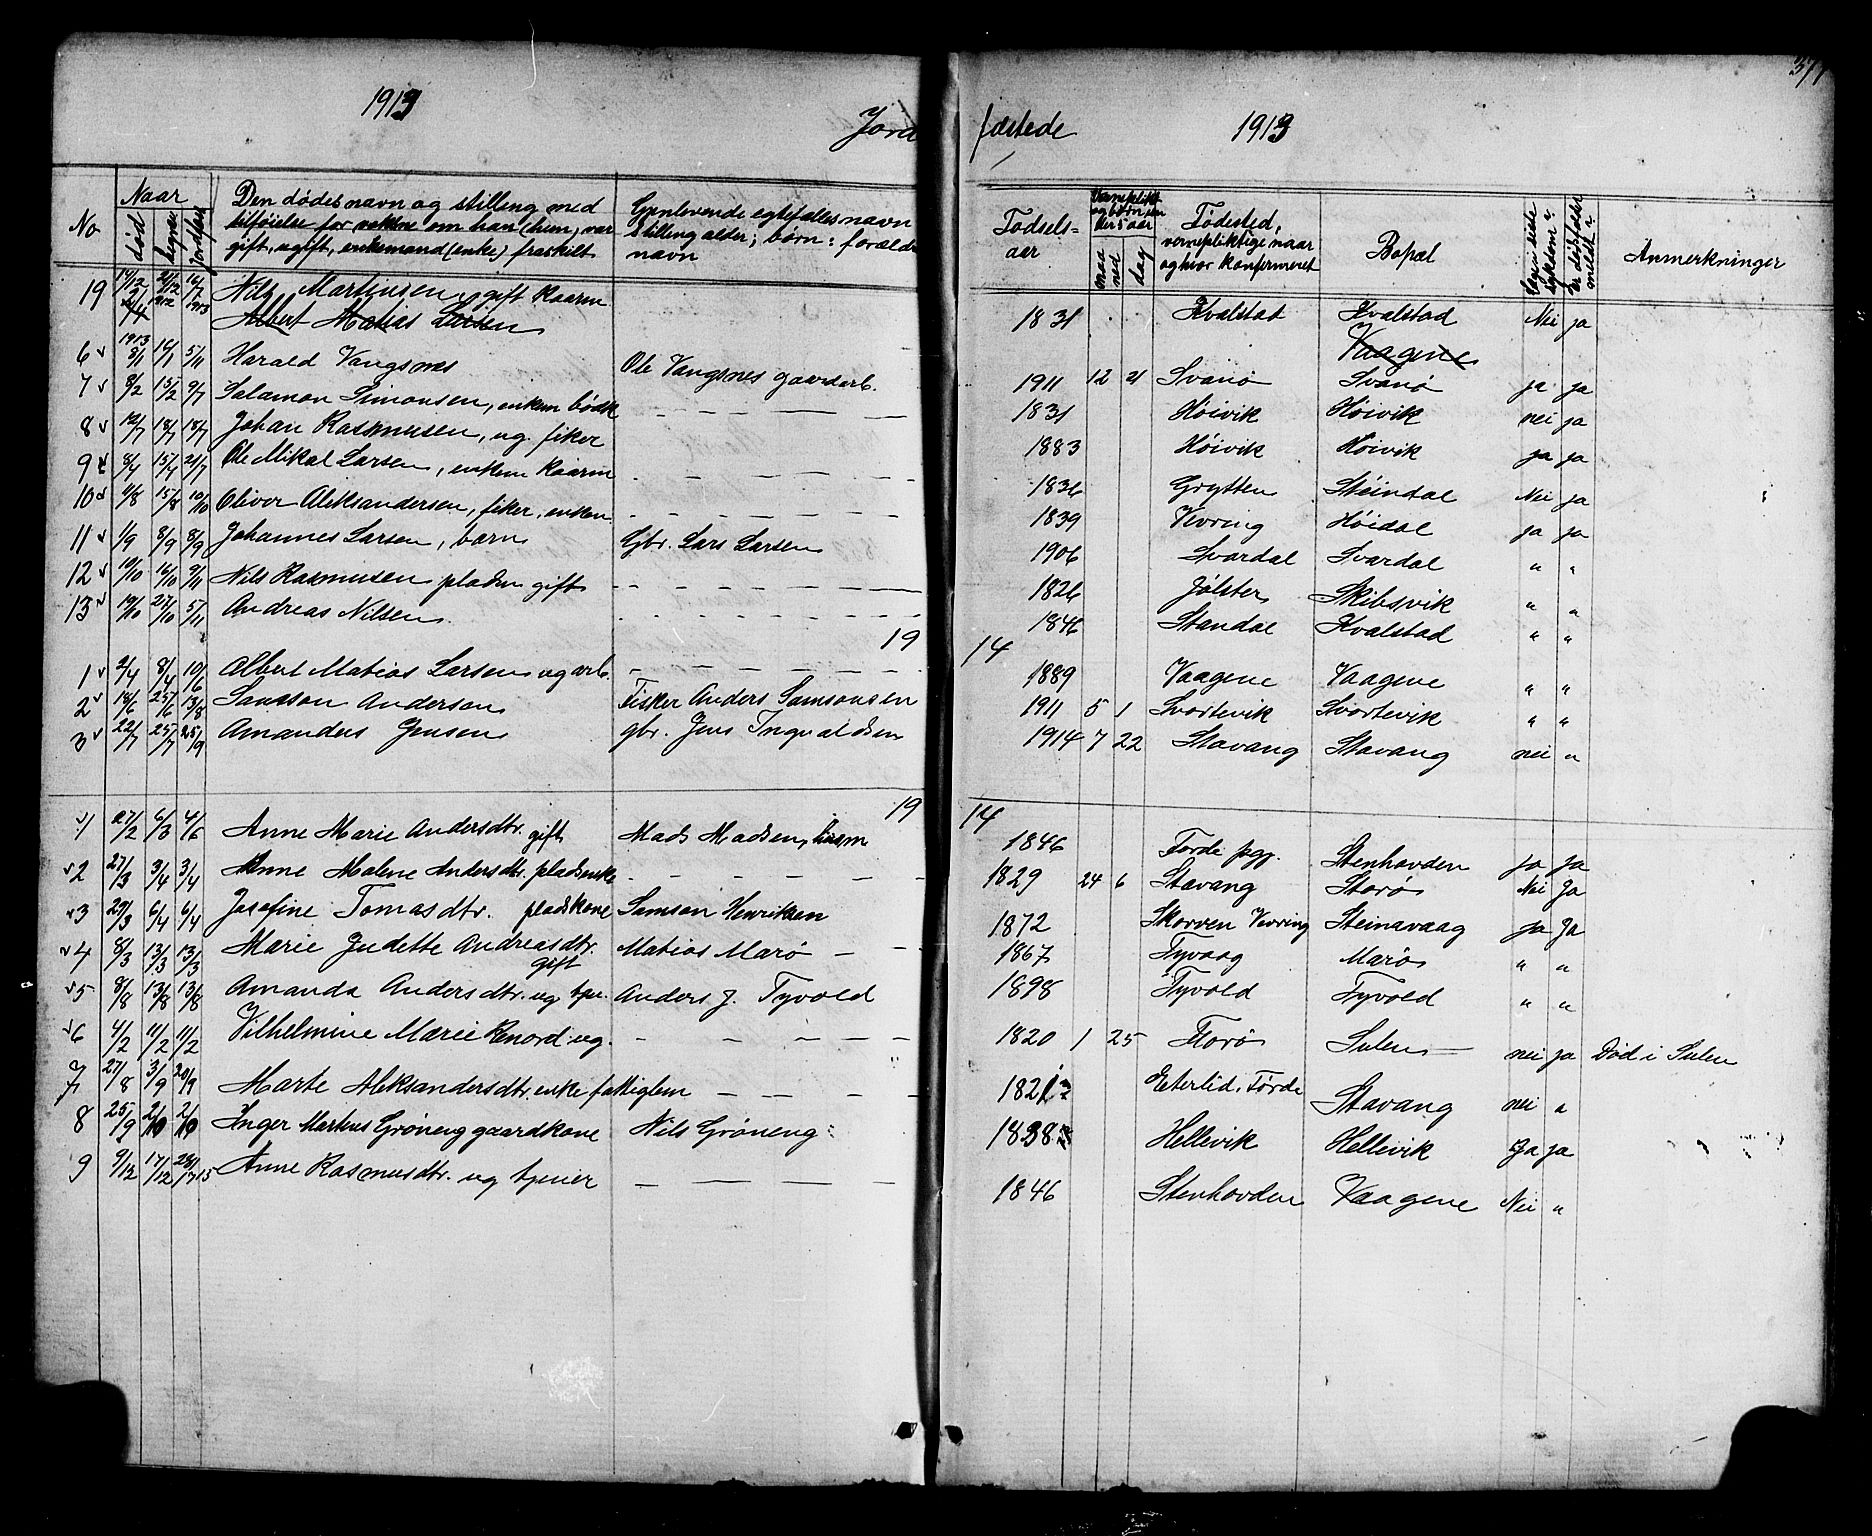 377
1913
Jord
fæstede
1913
No
Naar
død
begravet
jordfæstet
Den dødes navn og stilling med
tilføielse for voksne om han (hun) var
gift, ugift, enkemand (enke) fraskilt
Gjenlevende egtefælles navn
Stilling alder; børn: foræld
navn
Fødsels-
aar
Vernepliktige
og børn un
der 5 aar
maa
ned
dag
Fødested,
vernepliktige naar
og hvor konfirmeret
Bopæl
Er dødsfaldet
meldt?
Anmerkninger
19 14/12 21/12 16/7 1913 Nils Martinsen gift kaarm 1831 Kvalstad Kvalstad Nei ja
2/4 Albert Matias Larsen Vaagene
1913
6 8/1 16/1 5/11 Harald Vangsnes Ole Vangsnes gaardarb. 1911 12 21 Svanø Svanø ja ja
7 8/2 15/2 9/7 Salamon Simonsen, enkem bødk — — — 1831 Høivik Høivik nei ja
8 12/7 18/7 18/7 Johan Rasmusen, ug. fiker 1883 Høivik Høivik ja ja
9 8/4 15/4 21/7 Ole Mikal Larsen, enkem kaarm — — — 1836 Grytten Steindal Nei ja
10 11/8 15/8 10/10 Oliver Aleksandersen, fiker, enkem — — — 1839 Vevring Høidal ja ja
11 1/9 8/9 8/9 Johannes Larsen, barn Gbr. Lars Larsen 1906 Svardal Svardal " "
12 10/10 16/10 9/11 Nils Rasmusen pladsm gift — — — 1826 Jølster Skibsvik " "
13 19/10 27/10 5/11 Andreas Nilsen — — — 1846 Standal Kvalstad " "
19 14
1 2/4 8/4 10/6 Albert Matias Larsen ug arb. — — — 1889 Vaagene Vaagene " "
2 18/6 25/6 13/8 Samson Anderson Fisker Anders Samsonsen 1911 5 1 Svortevik Svortevik " "
3 22/7 25/7 25/9 Amandus Jensen gbr. Jens Ingvaldsen 1914 7 22 Stavang Stavang nei "
19 14
1 27/2 6/3 4/6 Anne Marie Andersdtr. gift Mads Madsen, husm 1846 Førde pgj. Stenhovden ja ja
2 27/3 3/4 3/4 Anne Malene Andersdtr. pladsenke — — — 1829 24 6 Stavang Storø Nei Ja
3 29/3 6/4 6/4 Josefine Tomasdtr. pladskone Samson Henriksen 1872 Skorven Vevring Steinavaag ja Ja
4 8/3 13/3 13/3 Marie Judette Andreasdtr. Matias Marø — 1867 Tyvaag Marø " "
gift
5 8/8 13/8 13/8 Amanda Andersdtr. ug tjen. Anders J. Tyvold 1898 Tyvold Tyvold " "
6 4/2 11/2 11/2 Vilhelmine Marie Renord ug. — — — 1820 1 25 Florø Sulen — nei ja Død i Sulen
7 27/8 3/9 20/9 Marte Aleksandersdtr. enke fattiglem — — — 1821 Førde Stavang nei "
8 25/9 2/10 2/10 Inger Martens Grøneng gaardkone Nils Grøneng 1838 Hellevik Hellevik Ja ja
9 9/12 17/12 28/1 1715 Anne Rasmusdtr. ug tjener — — — 1846 Stenhovden Vaagene Nei "